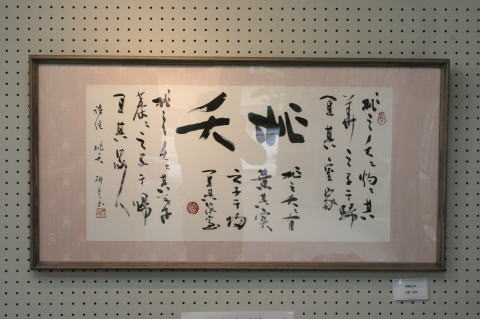 桃之夭〻灼〻其
華之子于歸
宜其室家
桃夭
桃之夭〻有
蕡其實
之子于歸
宜其家室
桃之夭〻其葉
蓁〻之子于歸
宜其家人
詩経 桃夭